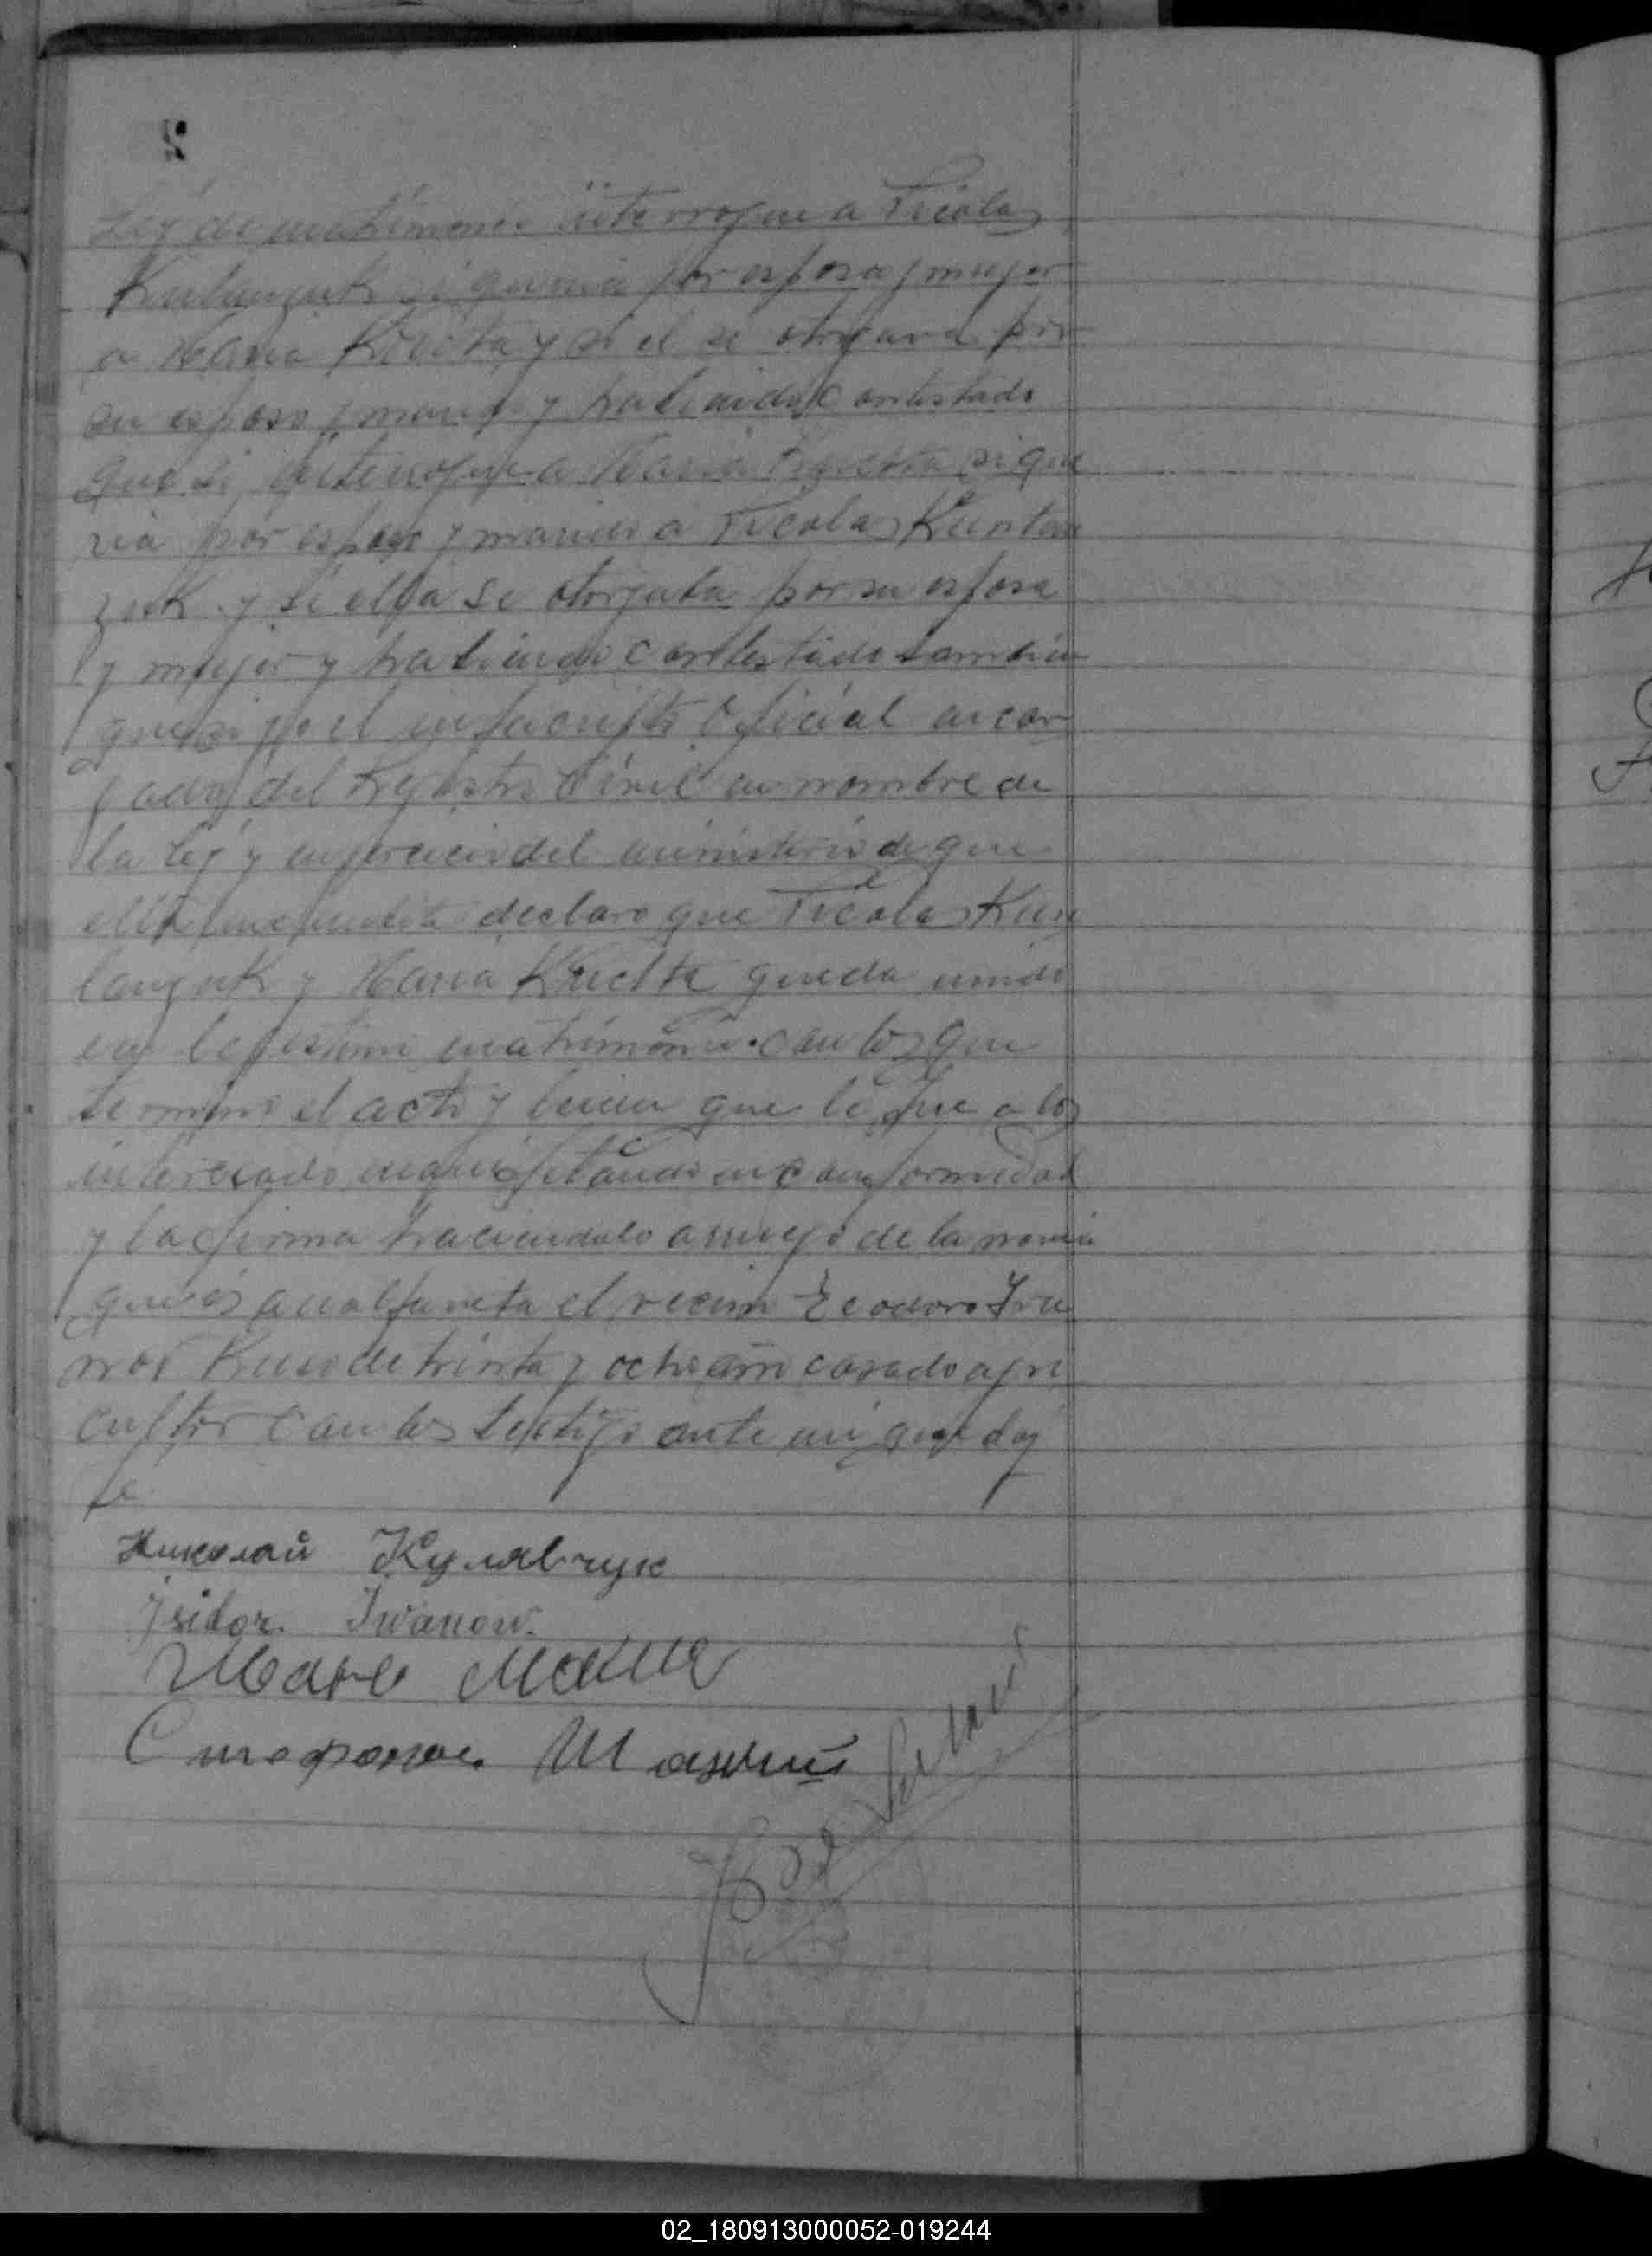 2
Ley de matrimonio interrogue a Nicolas
si queria por esposa y mujer
a Maria y si el se otorgava por
su esposo y marido y habiendo contestado
que si interrogue a Maria si que
ria por esposo y marido a Nicolas
zuk y si ella se otorgaba por su esposa
y mujer y habiendo contestado tambien
que si yo el infrascrito Oficial encar
gado del Registro Civil en nombre de
la ley y en ejercicio del ministerio de que
declaro que Nicolas Kus
lanzuk y Maria queda unido
en legitimo matrimonio con los que
termino el acto y leida que le fue a los
interesado manifestando en conformidad
y la firma haciendolo a ruego de la novia
que es analfaveta el vecino Teodoro Iva
nov Ruso de trinta y ocho año casado agri
cultor con los testigo ante mi que doy
fe
Николай Кулявчук
Isidor. Iwanow.
Иванъ
Стефанъ
02_180913000052-019244